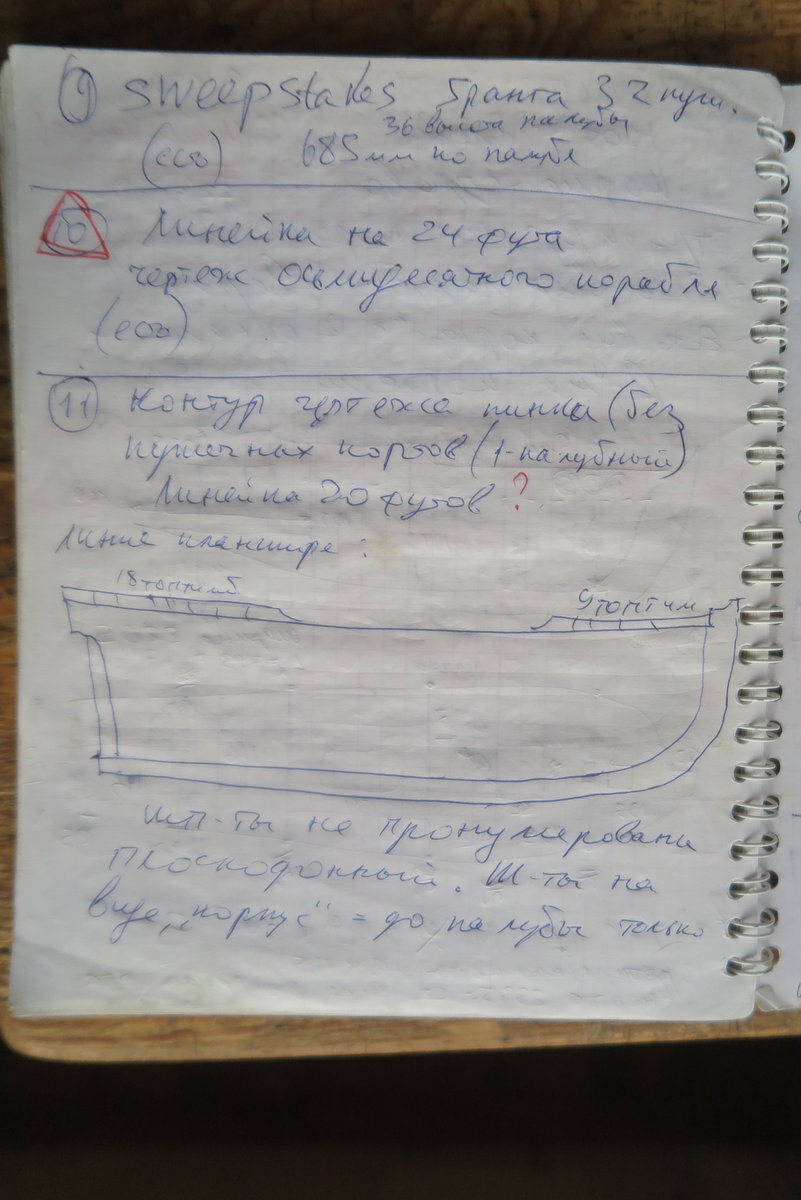 9 Sweepstakes Гранта 32 пуш.
36 высота палубы
(есть) 685 мм по палубе
10 Линейка на 24 фута
чертеж осьмидесятного корабля
(есть)
11 Контур чертежа пинка (без
пушечных портов (1-палубный)
Линейка 20 футов ?
Линия планшира :
18 топтимб
9 топтим
шп-ты не пронумерованы
плоскодонный. Ш-ты на
виде „корпус“ = до палубы только